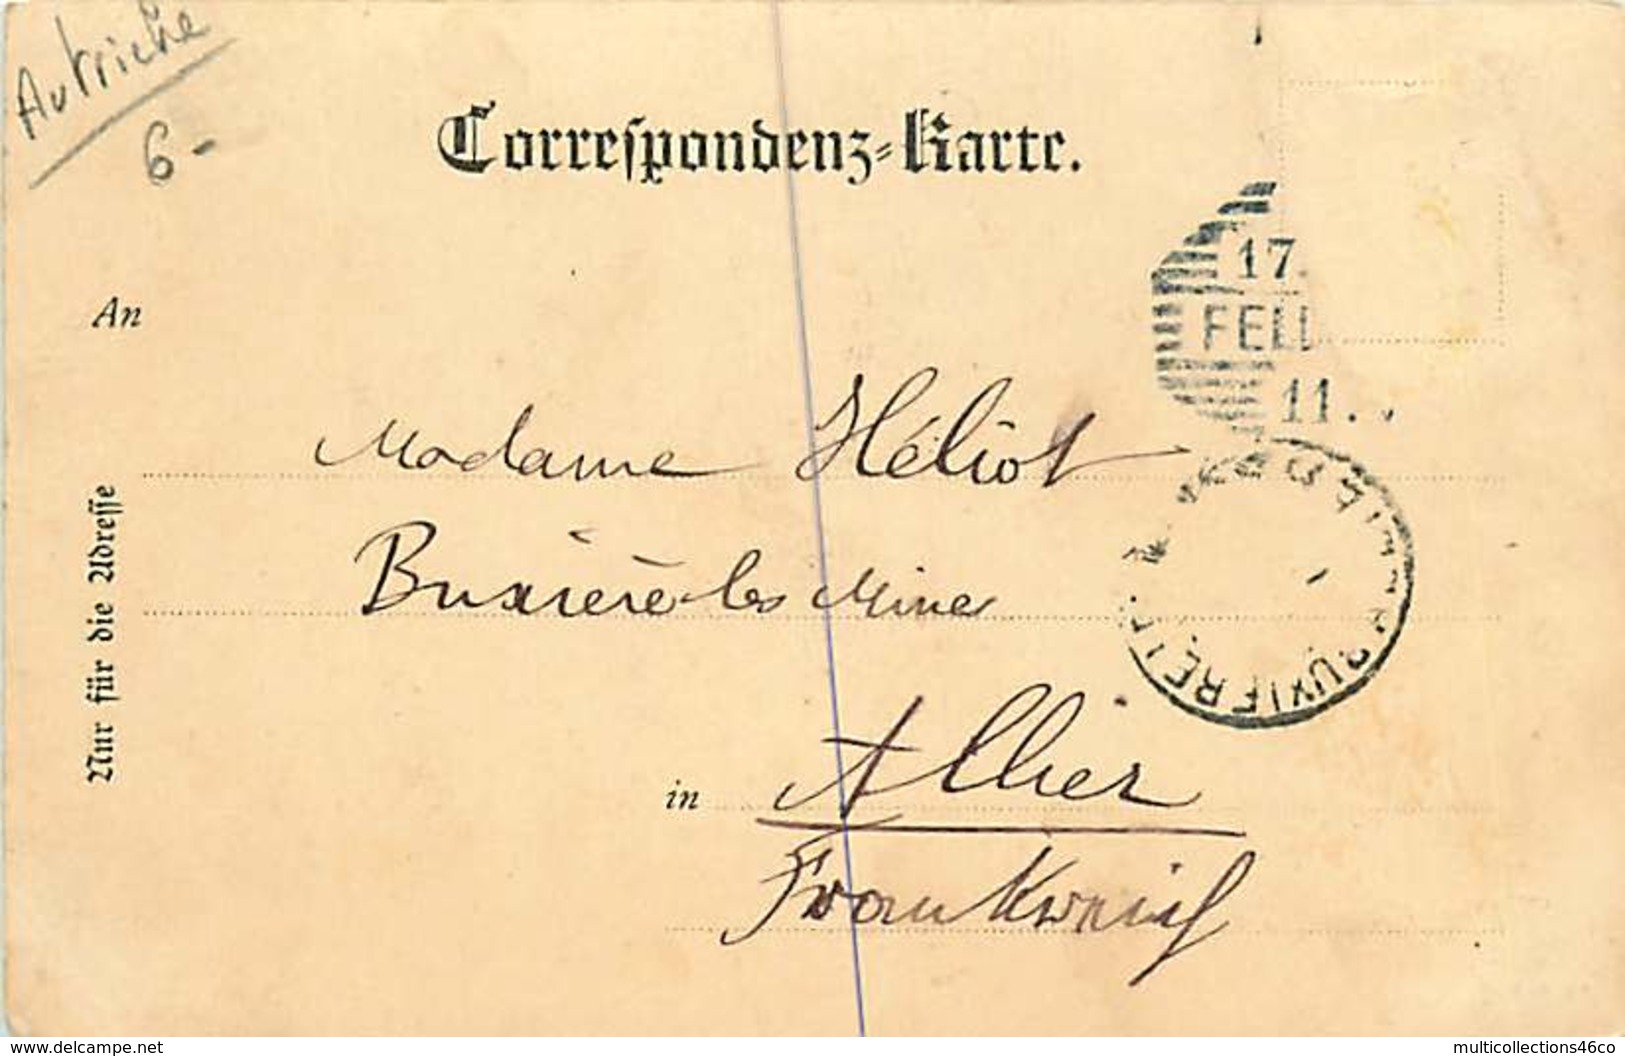 Autriche
6-
Correspondenz-Karte.
17.
FELL
11.
An
Madame Héliot
Buxière les Mines
BUXIERE
in Allier
Frankreich
Nur für die Adresse
www.delcampe.net
multicollections46co